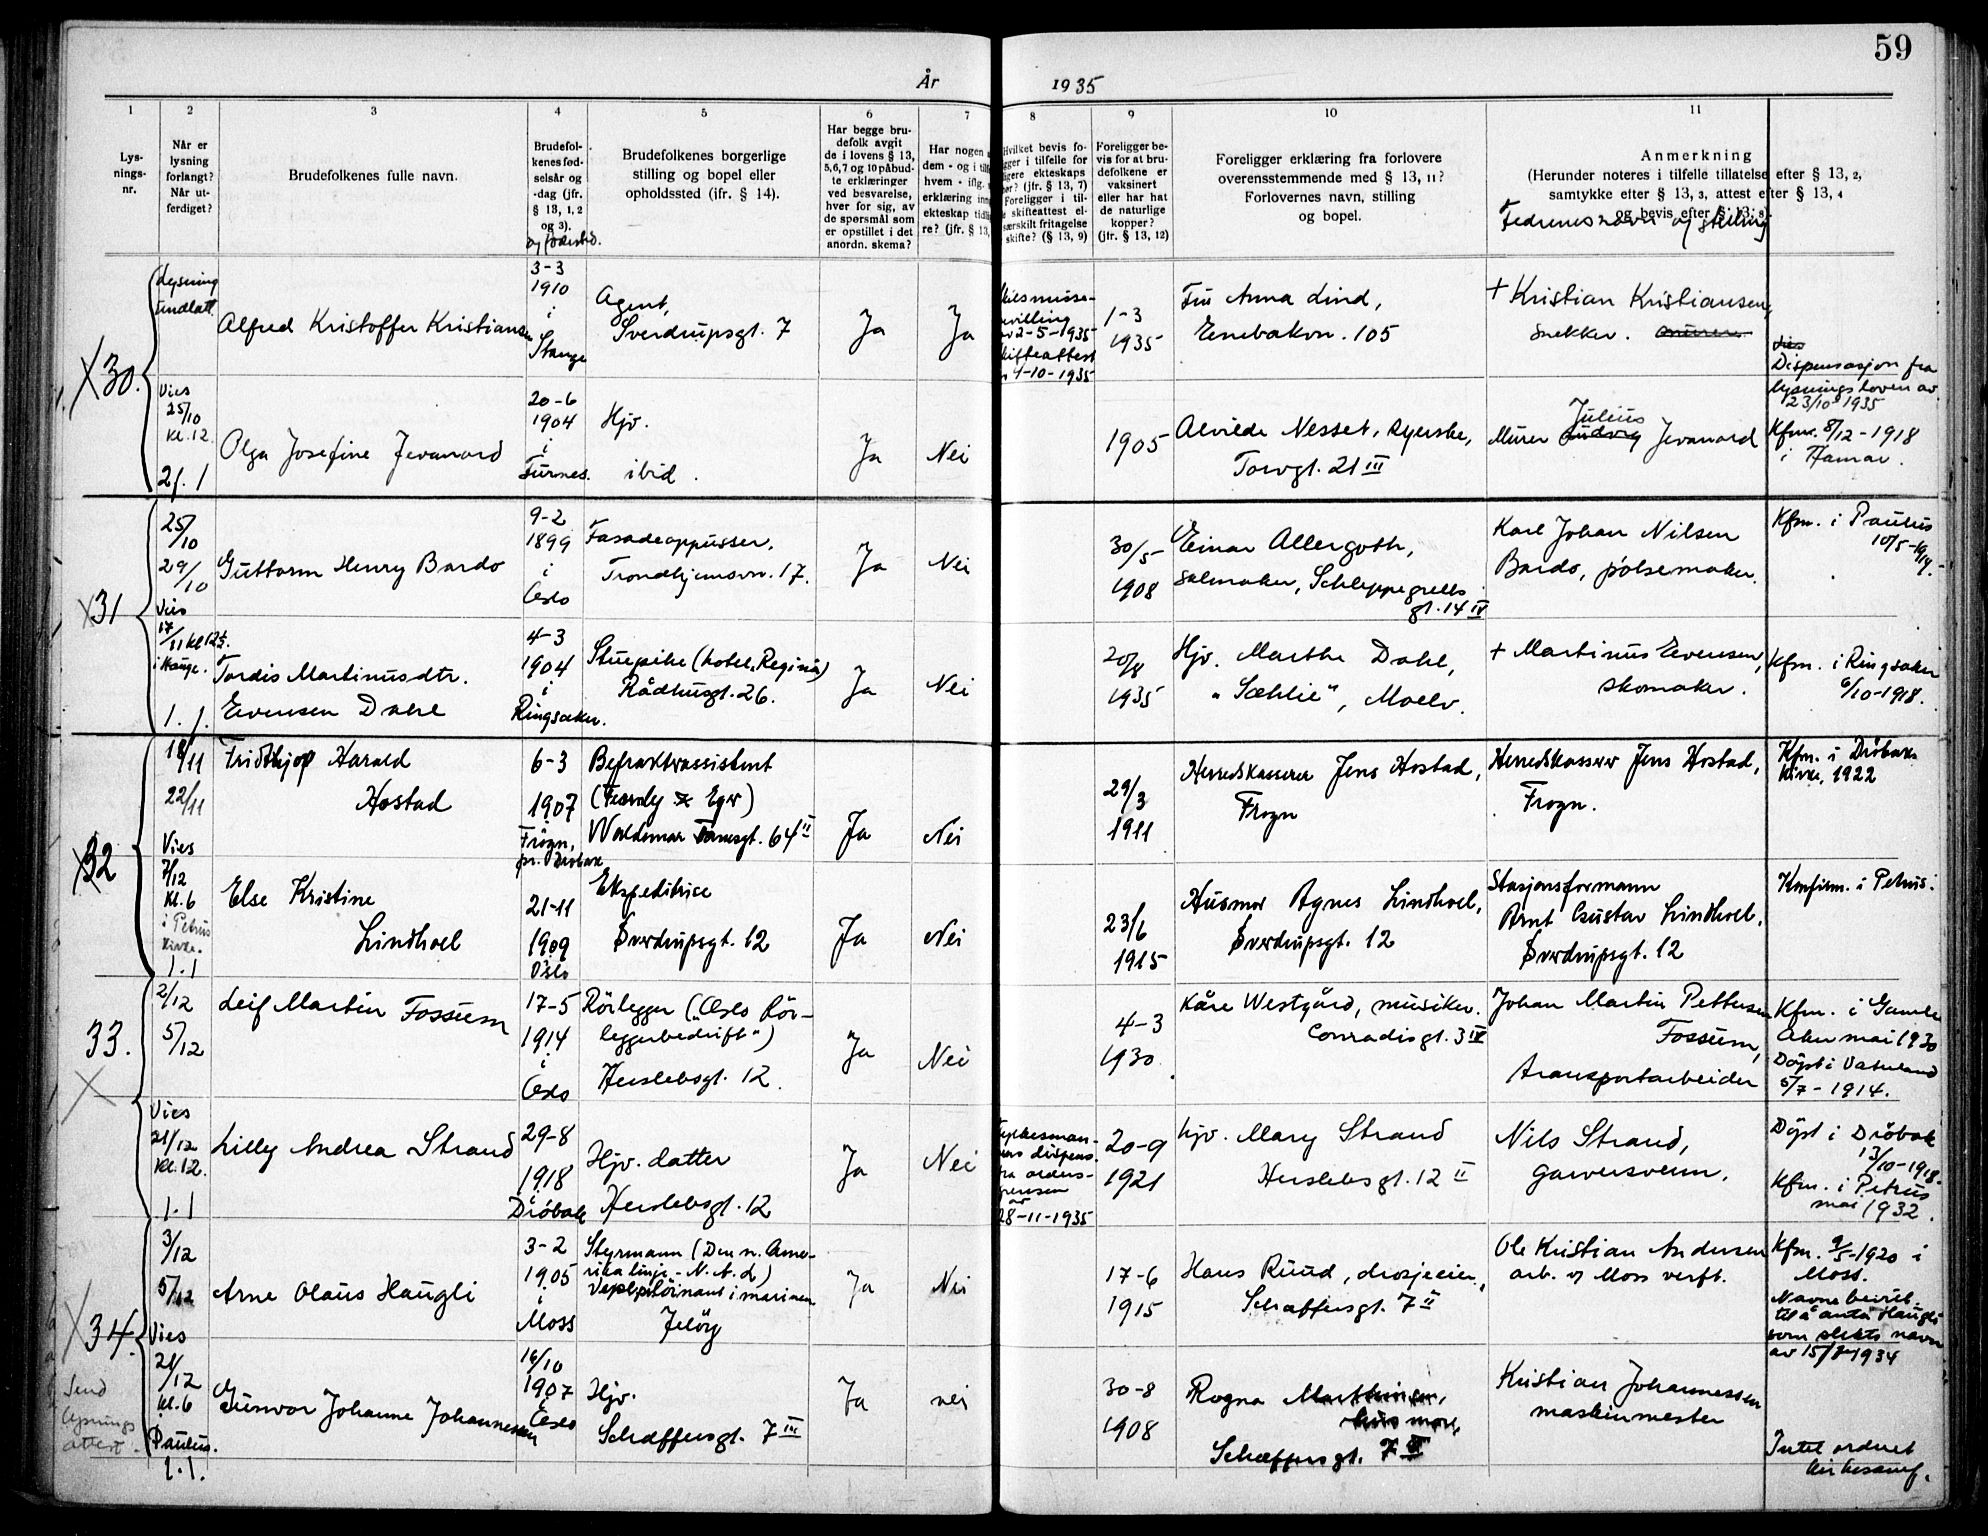 59
År 1935
1 2 3 4 5 6 7 8 9 10 11
Lys-
nings-
nr.
Når er
lysning
forlangt?
Når ut-
ferdiget?
Brudefolkenes fulle navn.
Brudefol-
kenes fød-
selsår og
-dag (jfr.
§ 13, 1, 2
og 3).
og fødested.
Brudefolkenes borgerlige
stilling og bopel eller
opholdssted (jfr. § 14).
Har begge bru-
defolk avgit
de i lovens § 13,
5,6,7 og 10 påbud-
te erklæringer
ved besvarelse,
hver for sig, av
de spørsmål som
er opstillet i det
anordn. skema?
Har nogen
dem - og i
hvem - iflg.
erklæring
ekteskap
re? (jfr. § 13,
Hvilket bevis fo-
i tilfelle for
ekteskaps
(jfr. § 13, 7)
Foreligger i til-
skifteattest el-
særskilt fritagelse
skifte? (§ 13, 9)
Foreligger be-
vis for at bru-
defolkene er
vaksinert
eller har hat
de naturlige
kopper?
(jfr. § 13, 12)
Foreligger erklæring fra forlovere
overensstemmende med § 13, 11?
Forlovernes navn, stilling
og bopel.
Anmerkning
(Herunder noteres i tilfelle tillatelse efter § 13, 2,
samtykke efter § 13, 3, attest efter § 13, 4
og bevis efter § 13, 8).
Fedrenes navn og stilling
30.
Lysning
undlatt
Vies
25/10
kl. 12.
2 f. 1
Alfred Kristoffer Kristiansen
3-3
1910
i
Stange
Agent,
Sverdrupsgt. 7
Ja
Ja
2-5-1935
4-10-1935
1-3
1935
Fru Anna Lind,
Enebakvn. 105
+ Kristian Kristiansen,
snekker.
Dispensasjon fra
lysningsloven av
23/10 1935
Olga Josefine Jevanord
20-6
1904
i
Furnes.
Hjv.
ibid.
Ja
Nei
1905
Alvilde Nesset, syerske,
Torvgt. 21 III
Julius
Murer Ludvig Jevanord
Kfm. 8/12-1918
i Hamar.
31
25/10
29/10
Vies
17/11 kl 12½.
i Hauge.
1. f.
Guttorm Henry Bardo
9-2
1899
i
Oslo
Fasadeoppusser,
Trondhjemsvn. 17.
Ja
Nei
30/5-
1908
Einar Allergoth,
salmaker, Schleppegrells
gt. 14 IV
Karl Johan Nilsen
Bardo, pølsemaker.
Kfm. i Paulus
10/5-1914.
Tordis Martinusdtr.
Evensen Dahl
4-3
1904
i
Ringsaker.
Stuepike (hotel "Regina")
Rådhusgt. 26.
Ja
Nei
20/8
1935
Hjv. Marthe Dahl,
"Sæhlie", Moelv.
+ Martinus Evensen,
skomaker.
Kfm. i Ringsaker
6/10-1918.
32
18/11
22/11
Vies
7/12
kl. 6
i Petrus
kirke.
1.1
Fridthjof Harald
Hostad
6-3
1907
Frogn,
pr. Drøbak
Befraktrassistent
(Fearnley & Eger)
Waldemar Thranesgt. 64 II
Ja
Nei
29/3
1911
Herredskasserer Jens Hostad,
Frogn
Herredskasserer Jens Hostad,
Frogn.
Kfm. i Drøbaks
kirke, 1922
Else Kristine
Lindhoel
21-11
1909
Oslo
Ekspeditrise
Sverdrupsgt. 12
Ja
Nei
23/6
1915
Husmor Agnes Lindhoel,
Sverdrupsgt. 12
Stasjonsformann
Arnt Gustav Lindhoel,
Sverdrupsgt. 12
Konfirm. i Petrus.
33.
2/12
5/12
Vies
21/12
kl. 12.
1.1
Leif Martin Fossum
17-5
1914
i
Oslo
Rørlegger ("Oslo Rør-
leggerbedrift")
Herslebsgt. 12
Ja
Nei
4-3
1930
Kåre Westgård, musiker.
Conradisgt. 3 IV
Johan Martin Pettersen
Fossum,
transportarbeider
Kfm. i Gamle
Aker mai 1930
Døpt i Vaterland
5/7-1914.
Lilly Andrea Strand
29-8
1918
i
Drøbak
Hjv. datter
Herslebsgt. 12
Ja
Nei
Fylkesman-
nens dispens.
fra alders-
grensen
av
28-11-1935
20-9
1921
Hjv. Mary Strand
Herslebsgt. 12 II
Nils Strand,
garversvenn.
Døpt i Drøbak
13/10-1918.
Kfm. i Petrus
mai 1932.
34.
Send
lysnings
attest.
3/12
5/12
Vies
21/12
kl. 6
Paulus.
1.1.
Arne Olaus Haugli
3-2
1905
i
Moss
Styrmann (Den n. Ame-
rika linje - N.A.L)
Vepl. løitnant i marinen
Jeløy
Ja
Nei
17-6
1915
Hans Ruud, drosjeeier,
Schæffersgt. 7 II
Ole Kristian Andersen
arb. v/ Moss verft.
Kfm. 9/5-1920 i
Moss.
Navnebevil.
til å anta Haugli
som slektsnavn
av 15/ 1934
Gunvor Johanne Johannessen
16/10
1907
i
Oslo
Hjv.
Schæffersgt. 7 III
Ja
nei
30-8
1908
Rogna Marthinsen,
husmor,
Schæffersgt. 7 II
Kristian Johannessen
maskinmester
Intet ordnet
kirkesamf.